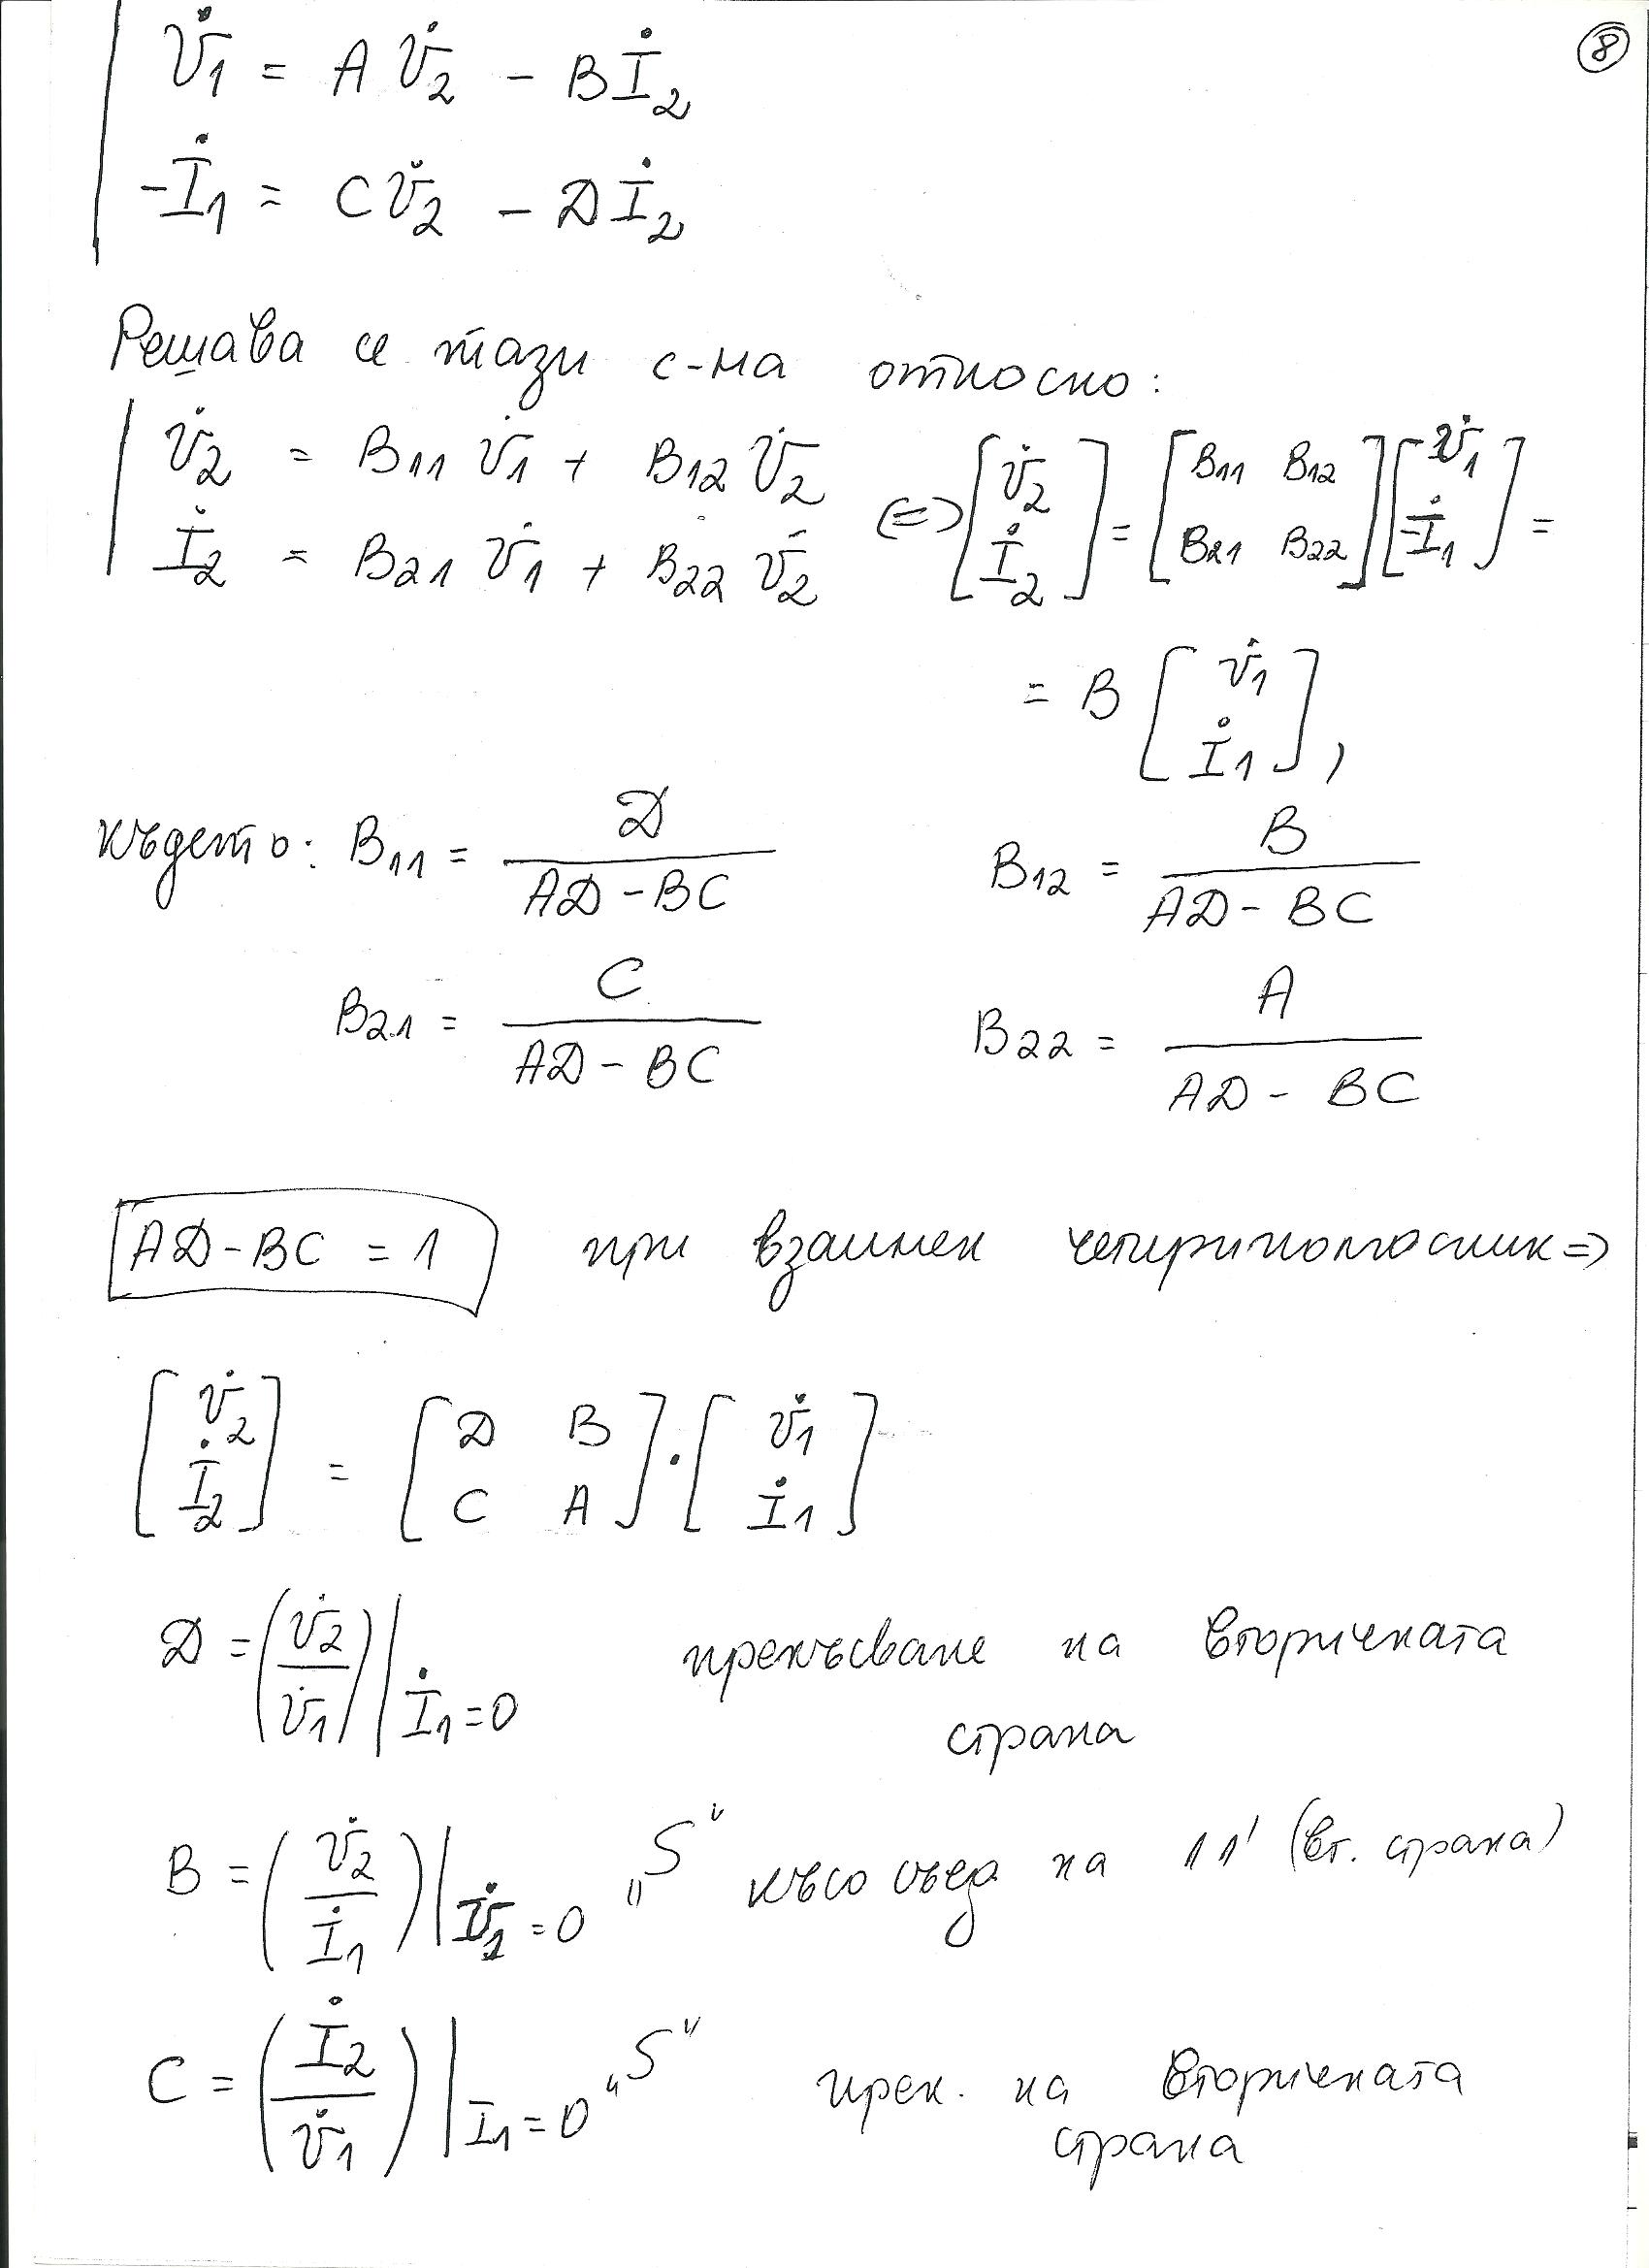 ⑧
V̇1 = A V̇2 - B İ2
-İ1 = C V̇2 - D İ2
Решава се тази с-ма относно:
V̇2 = B11 V̇1 + B12 V̇2 <=> [V̇2 İ2] = [B11 B12 B21 B22] [V̇1 -İ1] =
İ2 = B21 V̇1 + B22 V̇2
= B [V̇1 İ1],
където: B11 = D / (AD - BC) B12 = B / (AD - BC)
B21 = C / (AD - BC) B22 = A / (AD - BC)
AD - BC = 1 при взаимен четириполюсник =>
[V̇2 İ2] = [D B C A] . [V̇1 İ1]
D = (V̇2 / V̇1) | İ1 = 0 прекъсване на вторичната
страна
B = (V̇2 / İ1) | V̇1 = 0 "S" късо съед на 11' (вт. страна)
C = (İ2 / V̇1) | I1 = 0 "S" прек. на вторичната
страна